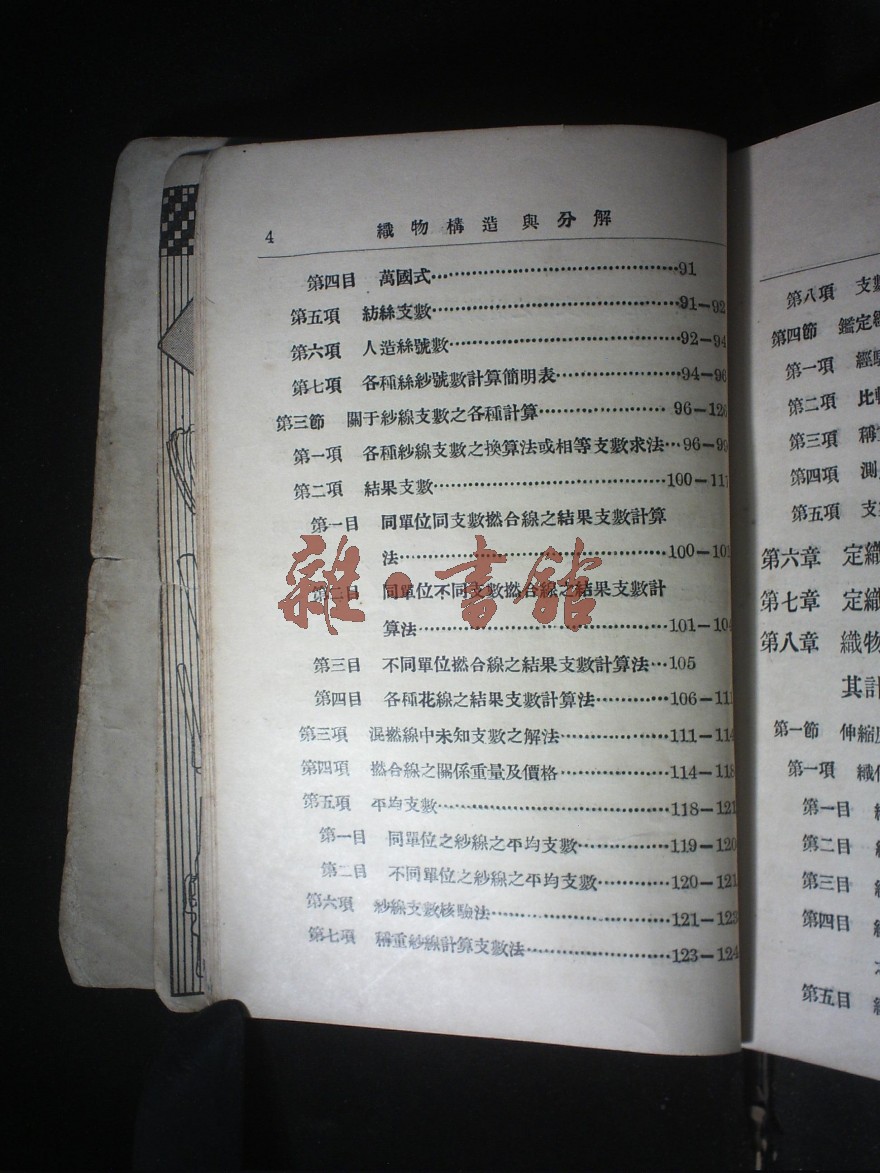 4 織物構造與分解
第四目 萬國式…91
第五項 紡絲支數…91—92
第六項 人造絲號數…92—94
第七項 各種絲紗號數計算簡明表…94—96
第三節 關于紗線支數之各種計算…96—126
第一項 各種紗線支數之換算法或相等支數求法…96—99
第二項 結果支數…100—117
第一目 同單位同支數撚合線之結果支數計算
法…100—101
第二目 同單位不同支數撚合線之結果支數計
算法…101—104
第三目 不同單位撚合線之結果支數計算法…105
第四目 各種花線之結果支數計算法…106—111
第三項 混撚線中未知支數之解法…111—114
第四項 撚合線之關係重量及價格…114—118
第五項 平均支數…118—121
第一目 同單位之紗線之平均支數…119—120
第二目 不同單位之紗線之平均支數…120—121
第六項 紗線支數核驗法…121—123
第七項 稱重紗線計算支數法…123—124
雜·書館
第八項 支數
第四節 鑑定經
第一項 經驗
第二項 比較
第三項 稱
第四項 測
第五項 支
第六章 定織
第七章 定織
第八章 織物
其計
第一節 伸縮
第一項 織
第一目
第二目
第三目
第四目
第五目